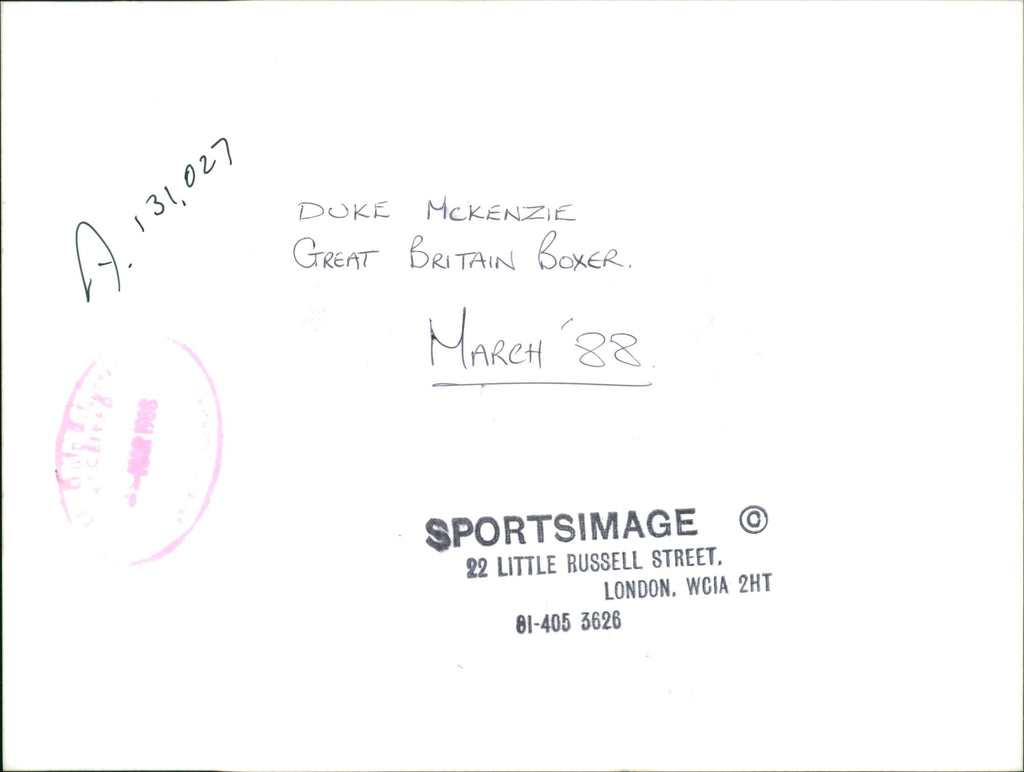 A. 131,027
DUKE MCKENZIE
GREAT BRITAIN BOXER.
MARCH '88.
MAR 1988
SPORTSIMAGE ©
22 LITTLE RUSSELL STREET,
LONDON, WC1A 2HT
81-405 3626